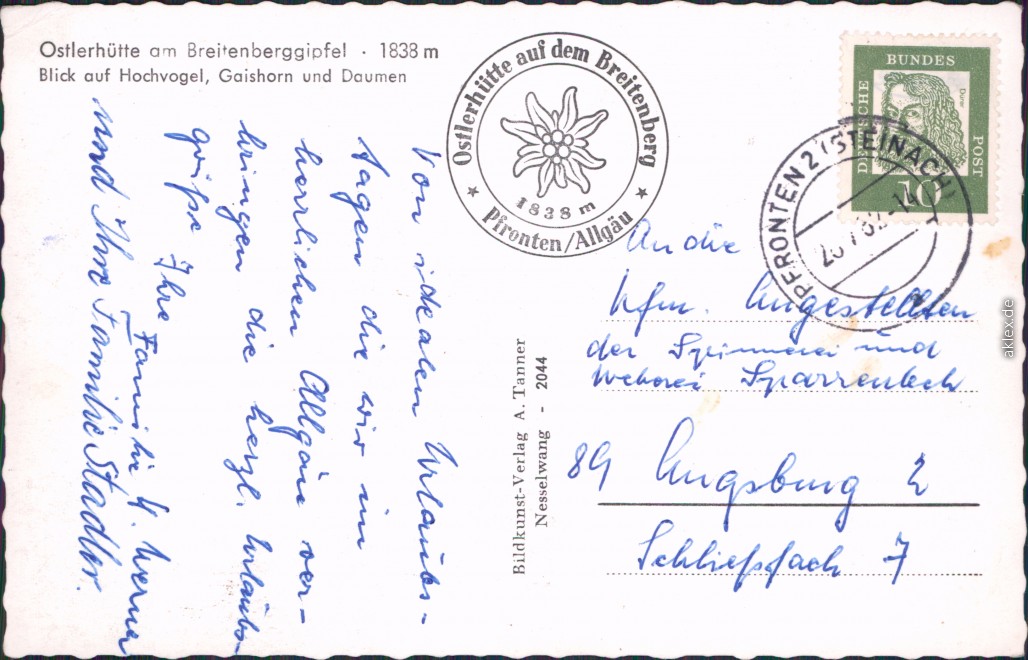 Ostlerhütte am Breitenberggipfel · 1838 m
Blick auf Hochvogel, Gaishorn und Daumen
Ostlerhütte auf dem Breitenberg
1838 m
★ Pfronten/Allgäu ★
DEUTSCHE BUNDES POST
Dürer
10
PFRONTEN 2 (STEINACH)
Von idealen Urlaubs-
tagen die wir im
herrlichen Allgäu ver-
bringen die herzl. Urlaubs-
grüße
Ihre Familie H. Werner
und Ihre Familie Stadler.
Bildkunst-Verlag A. Tanner
Nesselwang - 2044
An die
Kfm. Angestellten
der Spinnerei und
Weberei Sparrenlech
89 Augsburg 2
Schließfach 7
akfex.de